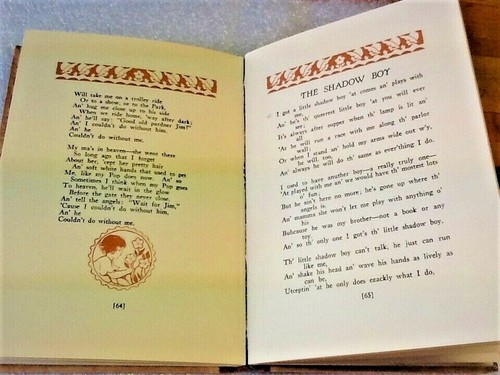 Will take me on a trolley ride
Or to a show, or to the Park,
An' hug me close up to his side
When we ride home, 'way after dark;
An' he'll say: "Good old pardner Jim!"
An' I couldn't do without him.
An' he
Couldn't do without me.
My ma's in heaven—she went there
So long ago that I forget
About her, 'cept her pretty hair
An' soft white hands that used to pet
Me, like my Pop does now. An' so
Sometimes I think when my Pop goes
To heaven, he'll wait in the glow
Before the gate they never close,
An' tell the angels: "Wait for Jim,"
'Cause I couldn't do without him,
An' he
Couldn't do without me.
[64]
THE SHADOW BOY
I got a little shadow boy 'at comes an' plays with
me,
An' he's th' queerest little boy 'at you will ever
see;
It's always after supper when th' lamp is lit an'
all
'At he will run a race with me along th' parlor
wall;
Or when I stand an' hold my arms wide out w'y,
he will, too,
An' always he will do th' same as ever'thing I do.
I used to have anuther boy—a really truly one—
'At played with me an' we would have th' mostest lots
o' fun;
But he ain't here no more; he's gone up where th'
angels is
An' mamma she won't let me play with anything o'
his
Buhcause he was my brother—not a book or any
toy,
An' so th' only one I got's th' little shadow boy.
Th' little shadow boy can't talk, he just can run
like me,
An' shake his head an' wave his hands as lively as
can be,
Utceptin' 'at he only does ezackly what I do,
[65]